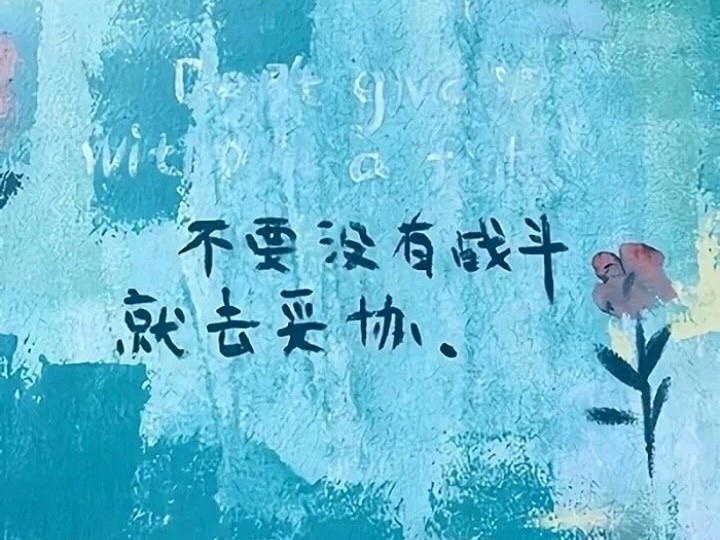 Don't give in
without a fight
不要没有战斗
就去妥协。